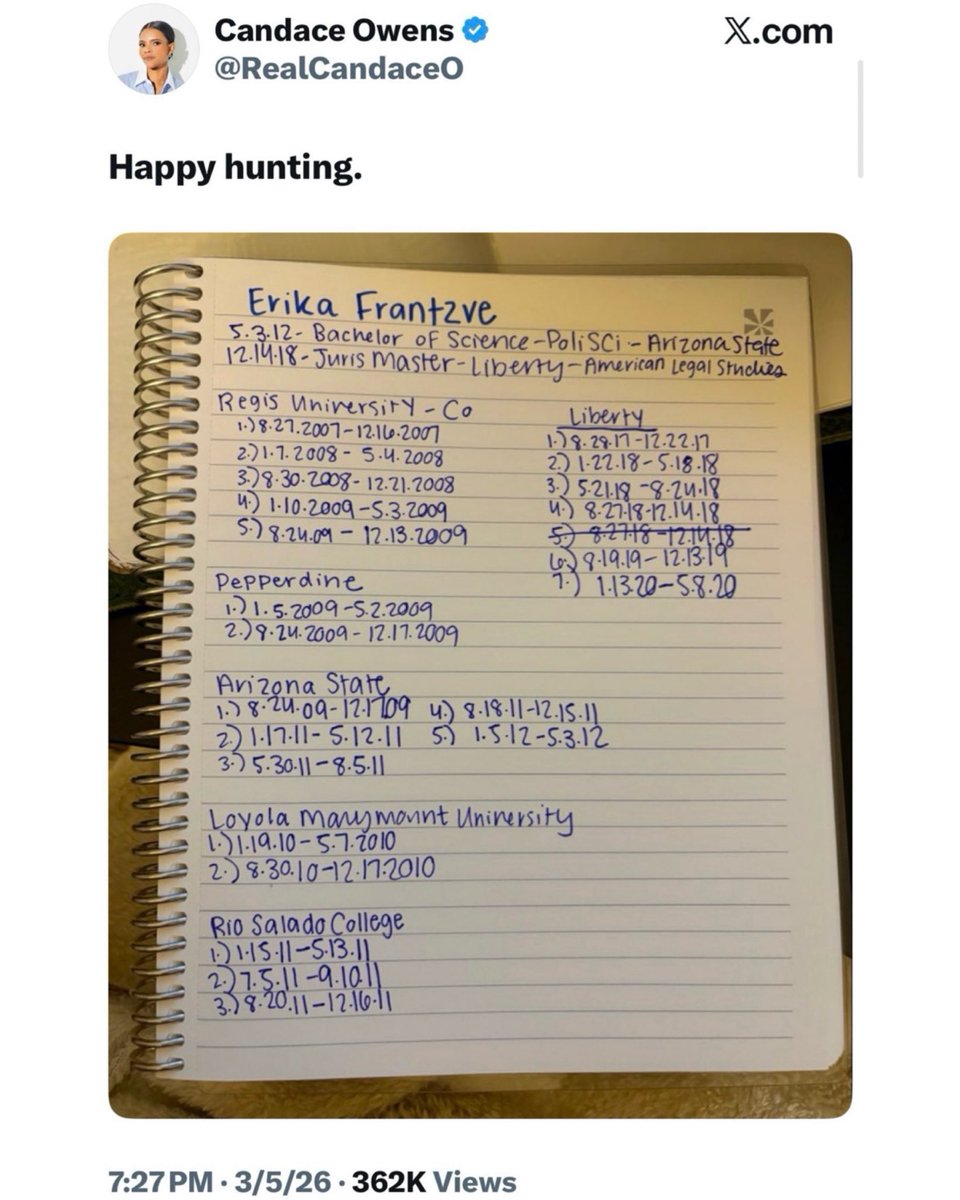 Candace Owens
@RealCandaceO
X.com
Happy hunting.
Erika Frantzve
5.3.12- Bachelor of Science-Poli SCi - Arizona State
12.14.18-Juris Master-Liberty-American Legal Studies
Regis University - Co
1.) 8.27.2007-12.16.2007
2.) 1.7.2008 - 5.4.2008
3.) 8.30.2008- 12.21.2008
4.) 1.10.2009 -5.3.2009
5.) 8.24.09 - 12.13.2009
Liberty
1.) 8.28.17-12.22.17
2.) 1.22.18-5.18.18
3.) 5.21.18 -8.24.18
4.) 8.27.18-12.14.18
5.) 8.27.18-12.14.18
6.) 8.19.19- 12.13.19
7.) 1.13.20-5.8.20
Pepperdine
1.) 1.5.2009 -5.2.2009
2.) 8.24.2009- 12.17.2009
Arizona State
1.) 8.24.09-12.1709 4.) 8.18.11-12.15.11
2.) 1.17.11- 5.12.11 5.) 1.5.12-5.3.12
3.) 5.30.11-8.5.11
Loyola Marymount University
1.) 1.19.10- 5.7.2010
2.) 8.30.10-12.17.2010
Rio Salado College
1.) 1.15.11-5.13.11
2.) 7.5.11 -9.10.11
3.) 8.20.11-12.16.11
7:27 PM · 3/5/26 · 362K Views